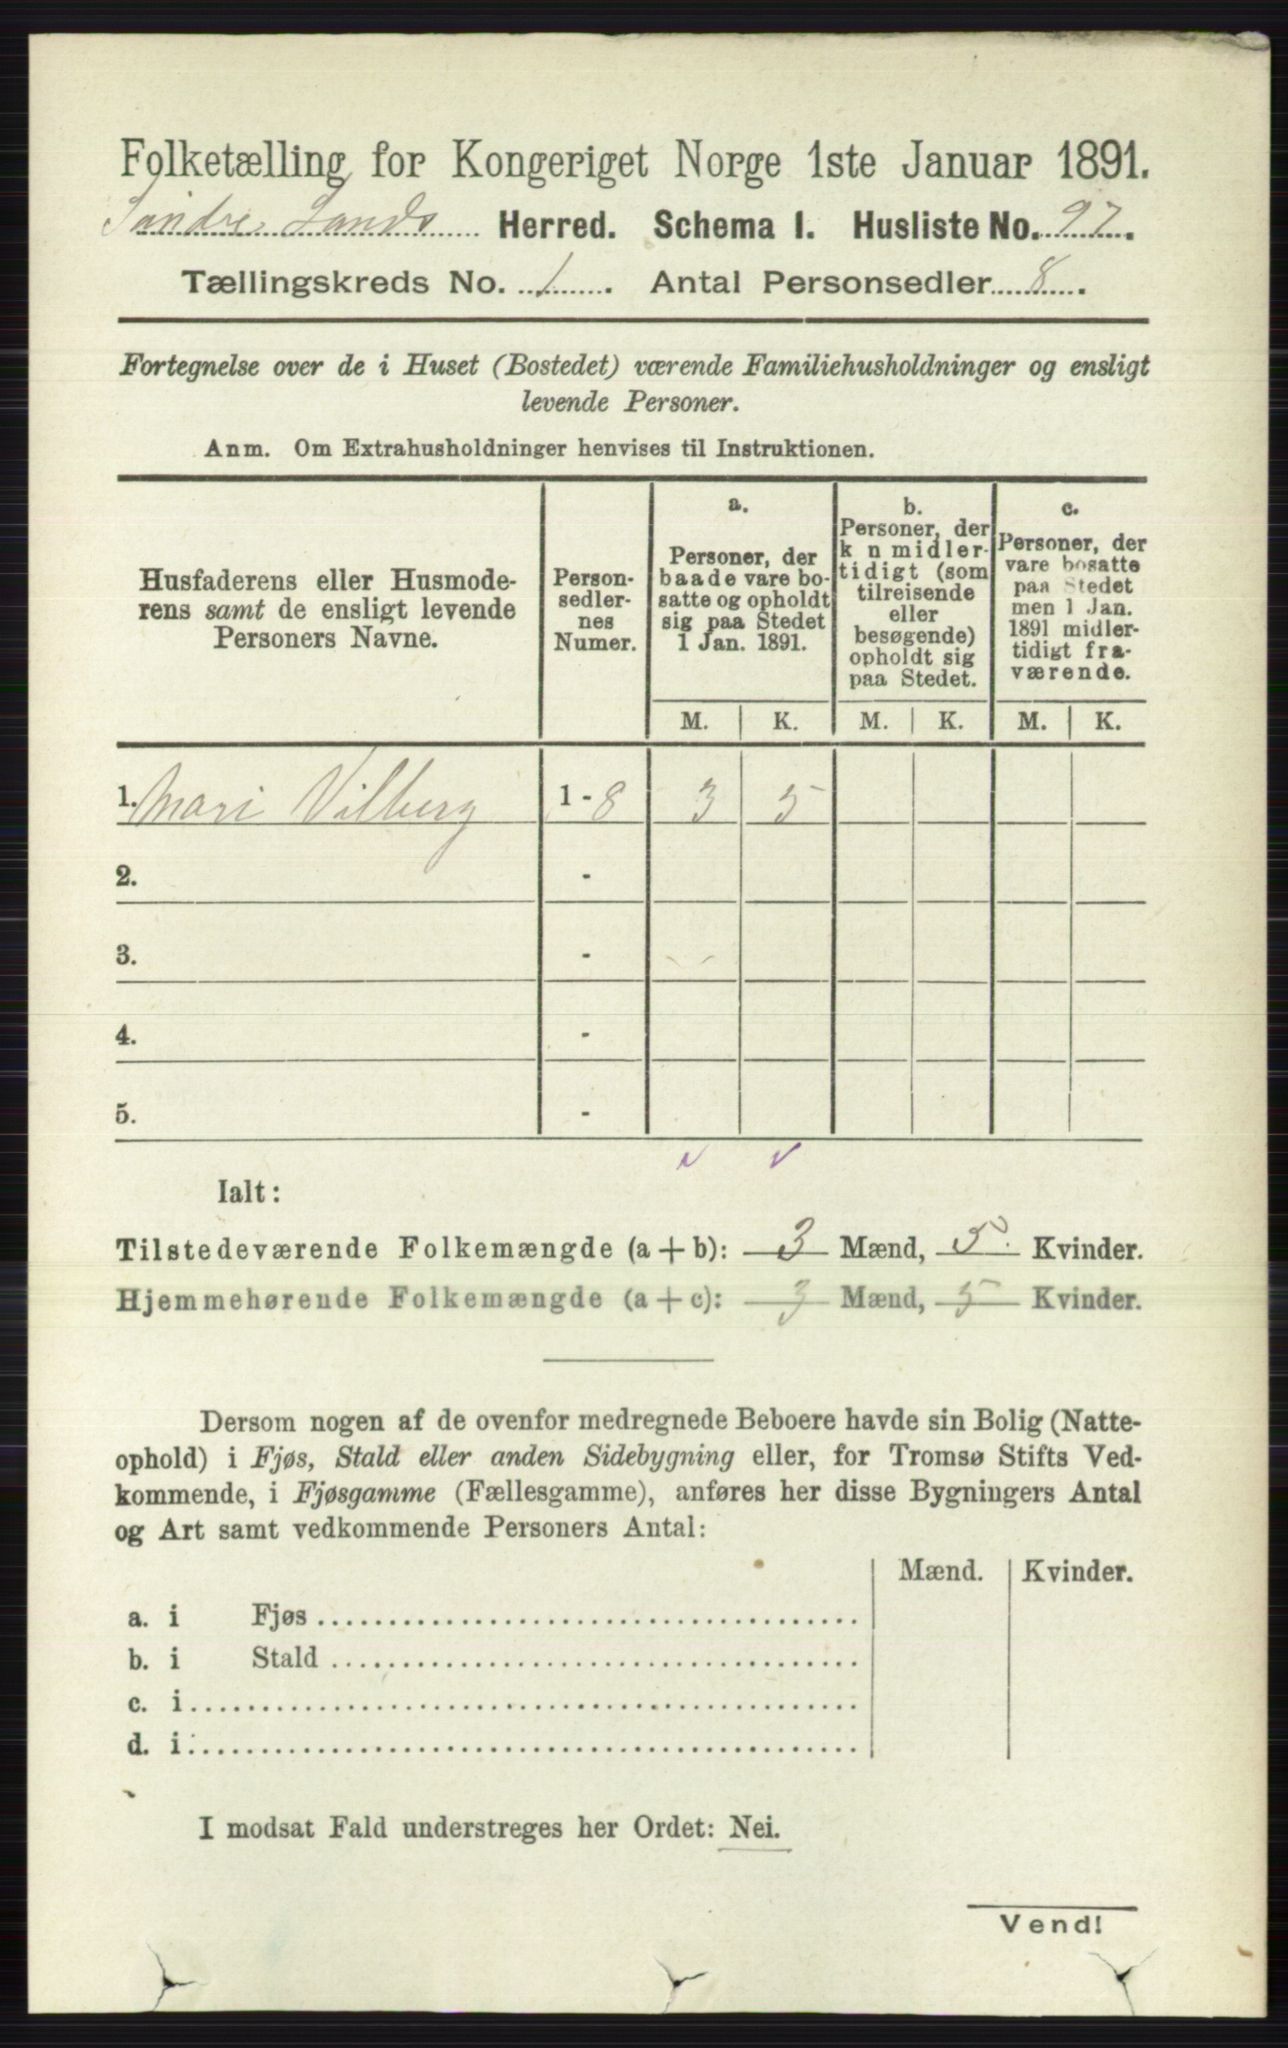 Folketælling for Kongeriget Norge 1ste Januar 1891.
Søndre Lands Herred. Schema 1. Husliste No. 97.
Tællingskreds No. 1. Antal Personsedler 8.
Fortegnelse over de i Huset (Bostedet) værende Familiehusholdninger og ensligt
levende Personer.
Anm. Om Extrahusholdninger henvises til Instruktionen.
Husfaderens eller Husmode-
rens samt de ensligt levende
Personers Navne.
Person-
sedler-
nes
Numer.
a.
Personer, der
baade vare bo-
satte og opholdt
sig paa Stedet
1 Jan. 1891.
b.
Personer, der
k n midler-
tidigt (som
tilreisende
eller
besøgende)
opholdt sig
paa Stedet.
c.
Personer, der
vare bosatte
paa Stedet
men 1 Jan.
1891 midler-
tidigt fra-
værende.
M. K. M. K. M. K.
1. Mari Vilberg 1 - 8 3 5
2. -
3. -
4. -
5. -
Ialt:
Tilstedeværende Folkemængde (a + b): 3 Mænd, 5. Kvinder.
Hjemmehørende Folkemængde (a + c): 3 Mænd, 5 Kvinder.
Dersom nogen af de ovenfor medregnede Beboere havde sin Bolig (Natte-
ophold) i Fjøs, Stald eller anden Sidebygning eller, for Tromsø Stifts Ved-
kommende, i Fjøsgamme (Fællesgamme), anføres her disse Bygningers Antal
og Art samt vedkommende Personers Antal:
Mænd. Kvinder.
a. i Fjøs
b. i Stald
c. i
d. i
I modsat Fald understreges her Ordet: Nei.
Vend!